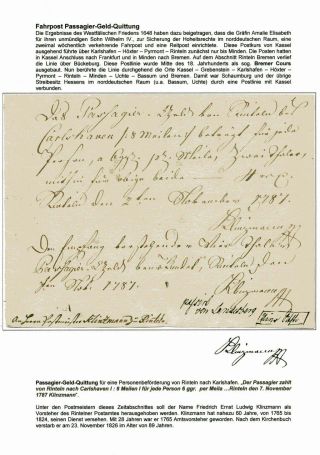 Fahrpost Passagier-Geld-Quittung
Die Ergebnisse des Westfälischen Friedens 1648 haben dazu beigetragen, dass die Gräfin Amelie Elisabeth
für ihren unmündigen Sohn Wilhelm IV., auf Sicherung der Hoheitsrechte im norddeutschen Raum, eine
zweimal wöchentlich verkehrende Fahrpost und eine Reitpost einrichtete. Diese Postkurs von Kassel
ausgehend führte über Karlshafen – Höxter – Pyrmont – Rinteln zunächst nur bis Minden. Die Posten hatten
in Kassel Anschluss nach Frankfurt und in Minden nach Bremen. Auf dem Abschnitt Rinteln Bremen verlief
die Linie über Bückeburg. Diese Postlinie wurde Mitte des 18. Jahrhunderts als sog. Bremer Cours
ausgebaut. Nun berührte die Linie durchgehend die Orte Kassel – Grebenstein – Karlshafen – Höxter –
Pyrmont – Rinteln – Minden – Uchte – Bassum und Bremen. Damit war Schaumburg und der übrige
Streubesitz Hessens im norddeutschen Raum (u.a. Bassum, Uchte) durch eine Postlinie mit Kassel
verbunden.
Das Passagier-Geld von Rinteln bis
Carlshaven (8 Meilen) beträgt für jede
Person, a 6ggr. pr. Meile, Zwei Thaler,
Rinteln den 7ten November 1787.
Klinzmann
Passagier-Geld Rinteln den
7ten Nov. 1787.
Klinzmann
Klinzmann
Passagier-Geld-Quittung für eine Personenbeförderung von Rinteln nach Karlshafen. „Der Passagier zahlt
von Rinteln nach Carlshaven I : 8 Meilen I für jede Person 6 ggr. per Meile ...Rinteln den 7. November
1787 Klinzmann".
Unter den Postmeistern dieses Zeitabschnittes soll der Name Friedrich Ernst Ludwig Klinzmann als
Vorsteher des Rintelner Postamtes herausgehoben werden. Klinzmann hat nahezu 60 Jahre, von 1765 bis
1824, seinen Dienst versehen. Mit 28 Jahren war er 1765 Amtsvorsteher geworden. Nach dem Kirchenbuch
verstarb er am 23. November 1826 im Alter von 89 Jahren.